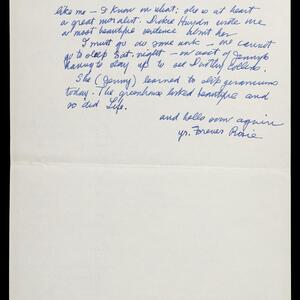 like me – I know on what; she is at heart
a great moralist. Huydn wrote me
a most beautiful sentence about her
I must go do some work – we cannot
go to sleep Sat. night – on acct of Jenny's
having to stay up to see Dorothy Collins.
She (Jenny) learned to slip geraniums
today. The greenhouse looked beautiful and
so did Life.
and hello over again
yr. Forever Rosie